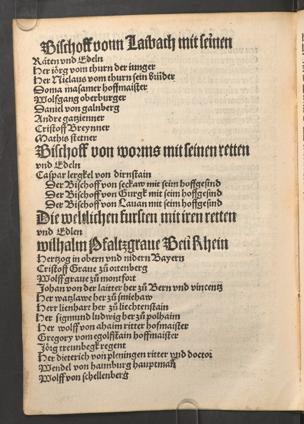 Bischoff vonn Laibach mit seinen
Räten vnd Edeln
Her iörg vom thurn der iunger
Her Niclaus vom thurn sein brüder
Doma masamer hoffmaister
Wolfgang oberburger
Daniel von galnberg
Andre gatzienner
Cristoff Breynner
Mathis stetner
Bischoff von worms mit seinen retten
vnd Edeln
Caspar lergkel von dirnstain
Der Bischoff von seckaw mit seim hoffgesind
Der Bischoff von Gurgk mit seim hoffgesind
Der Bischoff von Lauan mit seim hoffgesind
Die weltlichen fursten mit iren retten
vnd Edlen
wilhalm Pfaltzgraue Beü Rhein
Hertzog in obern vnd nidern Bayern
Cristoff Graue zü ortenberg
Wolff graue zü montfort
Johan von der laitter her zü Bern vnd vincentz
Her watzlawe her zü smiehaw
Herr lienhart her zü liechtenstain
Her sigmund ludwig her zü polhaim
Her wolff von ahaim ritter hofmaister
Gregory vom egolfstain hoffmaister
Jörg treunbegk regent
Her dieterich von pleningen ritter vnd doctor
Wendel von hamburg hauptman
Wolff von schellenberg